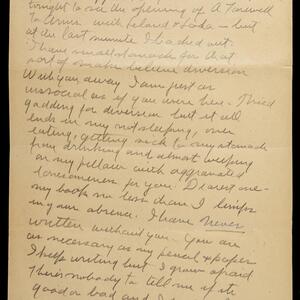 tonight to see the opening of A Farewell
to Arms with Leland & Lada – but
at the last minute I backed out.
I have small stomach for that
sort of make believe diversion
With you away I am just as
unsocial as if you were here. I tried
gadding for diversion but it all
ends in my not sleeping, over
eating, getting sick to my stomach
from drinking and almost weeping
on my pillow with aggravated
lonesomeness for you. Dearest one –
my book no less than I limps
in your absence. I have never
written without you. You are
as necessary as my pencil & paper
I keep writing but I grow afraid
There's nobody to tell me if it's
good or bad and I